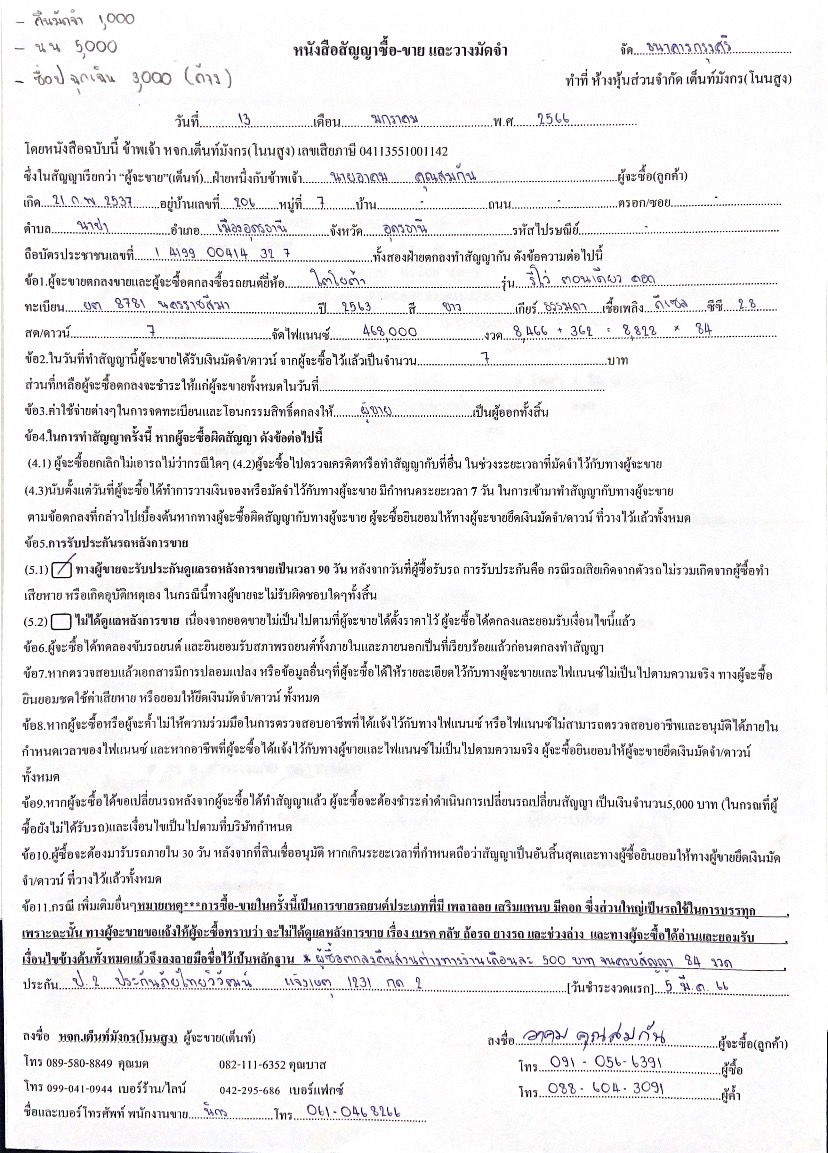 - คืนมัดจำ 1,000
- นน 5,000
- ช็อป ฉุกเฉิน 3,000 (ค้าง)
หนังสือสัญญาซื้อ-ขาย และวางมัดจำ
จัด ธนาคารกรุงศรี
ทำที่ ห้างหุ้นส่วนจำกัด เต็นท์มังกร(โนนสูง)
วันที่ 13 เดือน มกราคม พ.ศ 2566
โดยหนังสือฉบับนี้ ข้าพเจ้า หจก.เต็นท์มังกร(โนนสูง) เลขเสียภาษี 04113551001142
ซึ่งในสัญญาเรียกว่า "ผู้จะขาย"(เต็นท์)...ฝ่ายหนึ่งกับข้าพเจ้า นายอาคม คุณสมกัน ผู้จะซื้อ(ลูกค้า)
เกิด 21 ก.พ. 2537 อยู่บ้านเลขที่ 206 หมู่ที่ 7 บ้าน - ถนน - ตรอก/ซอย -
ตำบล นาข่า อำเภอ เมืองอุดรธานี จังหวัด อุดรธานี รหัสไปรษณีย์ -
ถือบัตรประชาชนเลขที่ 1 4199 00414 32 7 ทั้งสองฝ่ายตกลงทำสัญญากัน ดังข้อความต่อไปนี้
ข้อ1.ผู้จะขายตกลงขายและผู้จะซื้อตกลงซื้อรถยนต์ยี่ห้อ โตโยต้า รุ่น รีโว่ ตอนเดียว คอก
ทะเบียน ยต 8781 นครราชสีมา ปี 2563 สี ขาว เกียร์ ธรรมดา เชื้อเพลิง ดีเซล ซีซี 2.8
สด/ดาวน์ 7 จัดไฟแนนซ์ 468,000 งวด 8,466 + 362 = 8,828 × 84
ข้อ2.ในวันที่ทำสัญญานี้ผู้จะขายได้รับเงินมัดจำ/ดาวน์ จากผู้จะซื้อไว้แล้วเป็นจำนวน 7 บาท
ส่วนที่เหลือผู้จะซื้อตกลงจะชำระให้แก่ผู้จะขายทั้งหมดในวันที่
ข้อ3.ค่าใช้จ่ายต่างๆในการจดทะเบียนและโอนกรรมสิทธิ์ตกลงให้ ผู้ขาย เป็นผู้ออกทั้งสิ้น
ข้อ4.ในการทำสัญญาครั้งนี้ หากผู้จะซื้อผิดสัญญา ดังข้อต่อไปนี้
(4.1) ผู้จะซื้อยกเลิกไม่เอารถไม่ว่ากรณีใดๆ (4.2)ผู้จะซื้อไปตรวจเครดิตหรือทำสัญญากับที่อื่น ในช่วงระยะเวลาที่มัดจำไว้กับทางผู้จะขาย
(4.3)นับตั้งแต่วันที่ผู้จะซื้อได้ทำการวางเงินจองหรือมัดจำไว้กับทางผู้จะขาย มีกำหนดระยะเวลา 7 วัน ในการเข้ามาทำสัญญากับทางผู้จะขาย
ตามข้อตกลงที่กล่าวไปเบื้องต้นหากทางผู้จะซื้อผิดสัญญากับทางผู้จะขาย ผู้จะซื้อยินยอมให้ทางผู้จะขายยึดเงินมัดจำ/ดาวน์ ที่วางไว้แล้วทั้งหมด
ข้อ5.การรับประกันรถหลังการขาย
(5.1) ทางผู้ขายจะรับประกันดูแลรถหลังการขายเป็นเวลา 90 วัน หลังจากวันที่ผู้ซื้อรับรถ การรับประกันคือ กรณีรถเสียเกิดจากตัวรถไม่รวมเกิดจากผู้ซื้อทำ
เสียหาย หรือเกิดอุบัติเหตุเอง ในกรณีนี้ทางผู้ขายจะไม่รับผิดชอบใดๆทั้งสิ้น
(5.2) ไม่ได้ดูแลหลังการขาย เนื่องจากยอดขายไม่เป็นไปตามที่ผู้จะขายได้ตั้งราคาไว้ ผู้จะซื้อได้ตกลงและยอมรับเงื่อนไขนี้แล้ว
ข้อ6.ผู้จะซื้อได้ทดลองขับรถยนต์ และยินยอมรับสภาพรถยนต์ทั้งภายในและภายนอกเป็นที่เรียบร้อยแล้วก่อนตกลงทำสัญญา
ข้อ7.หากตรวจสอบแล้วเอกสารมีการปลอมแปลง หรือข้อมูลอื่นๆที่ผู้จะซื้อได้ให้รายละเอียดไว้กับทางผู้จะขายและไฟแนนซ์ไม่เป็นไปตามความจริง ทางผู้จะซื้อ
ยินยอมชดใช้ค่าเสียหาย หรือยอมให้ยึดเงินมัดจำ/ดาวน์ ทั้งหมด
ข้อ8.หากผู้จะซื้อหรือผู้จะค้ำไม่ให้ความร่วมมือในการตรวจสอบอาชีพที่ได้แจ้งไว้กับทางไฟแนนซ์ หรือไฟแนนซ์ไม่สามารถตรวจสอบอาชีพและอนุมัติได้ภายใน
กำหนดเวลาของไฟแนนซ์ และหากอาชีพที่ผู้จะซื้อได้แจ้งไว้กับทางผู้ขายและไฟแนนซ์ไม่เป็นไปตามความจริง ผู้จะซื้อยินยอมให้ผู้จะขายยึดเงินมัดจำ/ดาวน์
ทั้งหมด
ข้อ9.หากผู้จะซื้อได้ขอเปลี่ยนรถหลังจากผู้จะซื้อได้ทำสัญญาแล้ว ผู้จะซื้อจะต้องชำระค่าดำเนินการเปลี่ยนรถเปลี่ยนสัญญา เป็นเงินจำนวน5,000 บาท (ในกรณีที่ผู้
ซื้อยังไม่ได้รับรถ)และเงื่อนไขเป็นไปตามที่บริษัทกำหนด
ข้อ10.ผู้ซื้อจะต้องมารับรถภายใน 30 วัน หลังจากที่สินเชื่ออนุมัติ หากเกินระยะเวลาที่กำหนดถือว่าสัญญาเป็นอันสิ้นสุดและทางผู้ซื้อยินยอมให้ทางผู้ขายยึดเงินมัด
จำ/ดาวน์ ที่วางไว้แล้วทั้งหมด
ข้อ11.กรณี เพิ่มเติมอื่นๆหมายเหตุ***การซื้อ-ขายในครั้งนี้เป็นการขายรถยนต์ประเภทที่มี เพลาลอย เสริมแหนบ มีคอก ซึ่งส่วนใหญ่เป็นรถใช้ในการบรรทุก
เพราะฉะนั้น ทางผู้จะขายขอแจ้งให้ผู้จะซื้อทราบว่า จะไม่ได้ดูแลหลังการขาย เรื่อง เบรค คลัช ล้อรถ ยางรถ และช่วงล่าง และทางผู้จะซื้อได้อ่านและยอมรับ
เงื่อนไขข้างต้นทั้งหมดแล้วจึงลงลายมือชื่อไว้เป็นหลักฐาน * ผู้ซื้อตกลงคืนส่วนต่างทางร้านเดือนละ 500 บาท จนครบสัญญา 84 งวด
ประกัน ป.2 ประกันภัยไทยวิวัฒน์ แจ้งเหตุ 1231 กด 2 [วันชำระงวดแรก] 5 มี.ค. 66
ลงชื่อ หจก.เต็นท์มังกร(โนนสูง) ผู้จะขาย(เต็นท์)
ลงชื่อ อาคม คุณสมกัน ผู้จะซื้อ(ลูกค้า)
โทร 089-580-8849 คุณมด 082-111-6352 คุณบาส
โทร 091-056-6391 ผู้ซื้อ
โทร 099-041-0944 เบอร์ร้าน/ไลน์ 042-295-686 เบอร์แฟกซ์
โทร 088-604-3091 ผู้ค้ำ
ชื่อและเบอร์โทรศัพท์ พนักงานขาย โทร 061-0468266